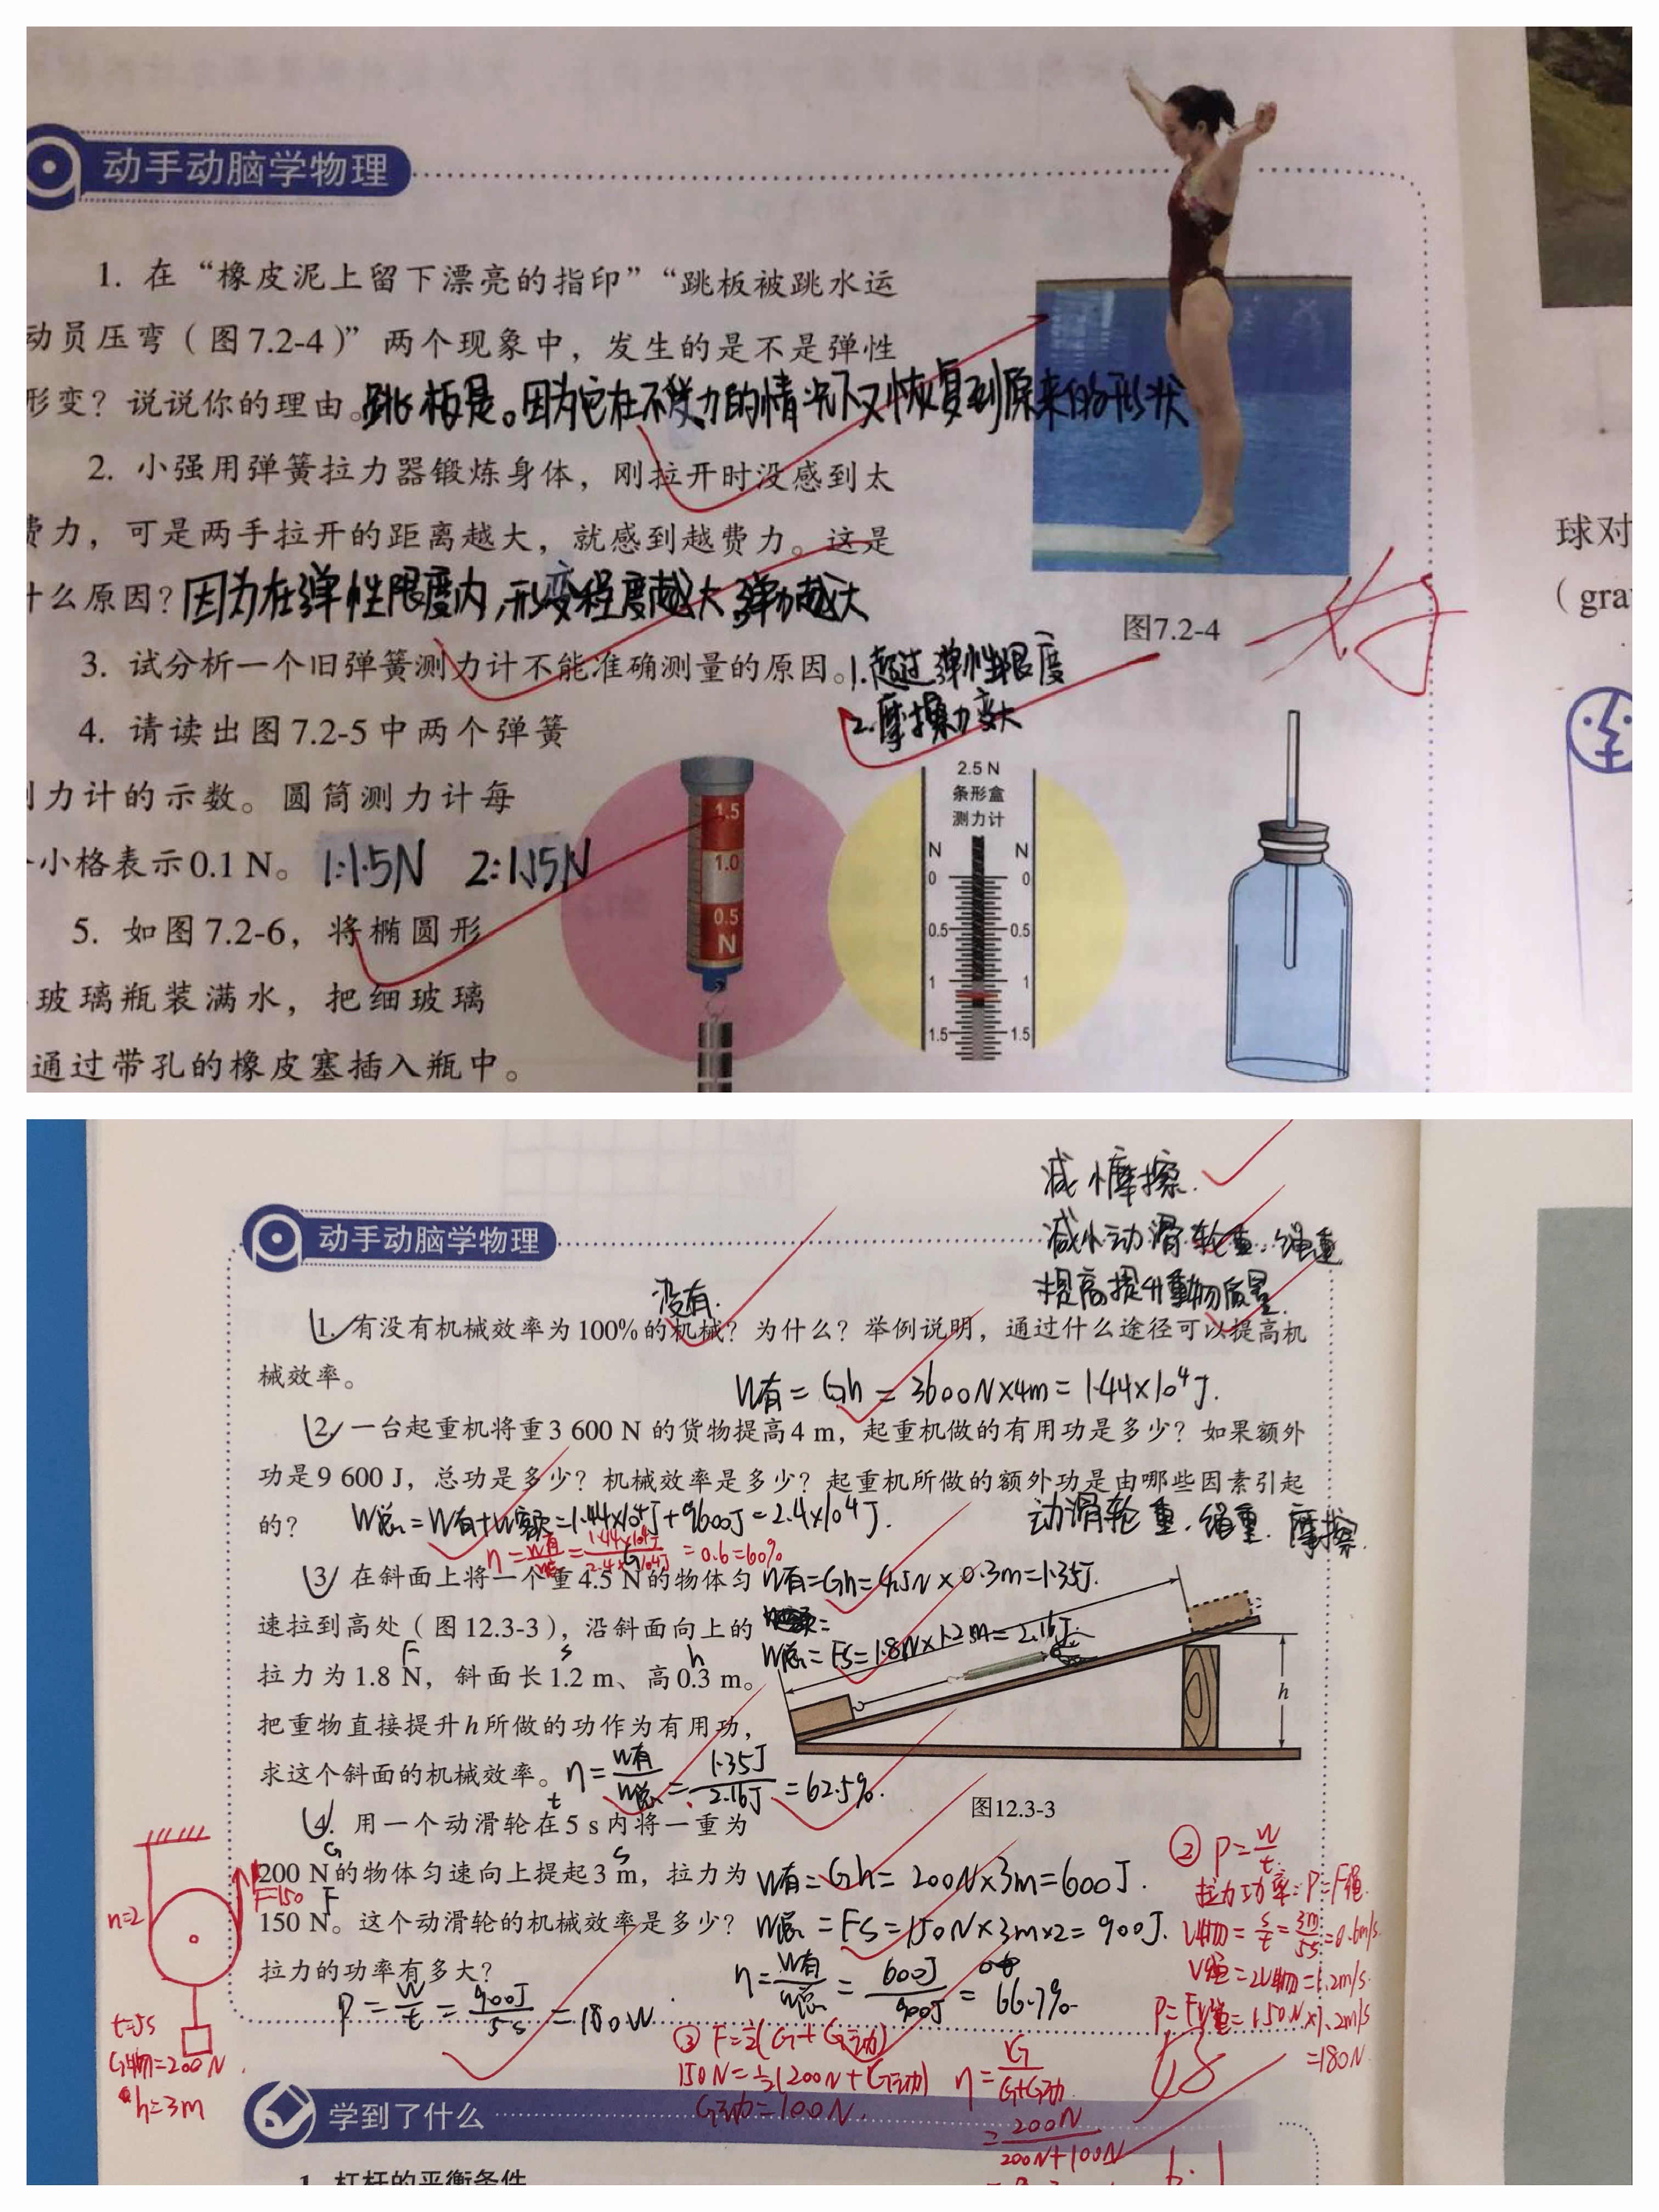 动手动脑学物理
1. 在“橡皮泥上留下漂亮的指印”“跳板被跳水运
动员压弯（图7.2-4）”两个现象中，发生的是不是弹性
形变？说说你的理由。跳板是。因为它在不受力的情况下又恢复到原来的形状
2. 小强用弹簧拉力器锻炼身体，刚拉开时没感到太
费力，可是两手拉开的距离越大，就感到越费力。这是
什么原因？因为在弹性限度内,形变程度越大,弹力越大
图7.2-4
3. 试分析一个旧弹簧测力计不能准确测量的原因。1.超过弹性限度
2.摩擦力变大
4. 请读出图7.2-5中两个弹簧
力计的示数。圆筒测力计每
小格表示0.1 N。 1:1.5N 2:1.15N
5. 如图7.2-6，将椭圆形
玻璃瓶装满水，把细玻璃
通过带孔的橡皮塞插入瓶中。
1.5
1.0
0.5
N
2.5 N
条形盒
测力计
N N
0 0
0.5 0.5
1 1
1.5 1.5
球对
（gra
减小摩擦.
减小动滑轮重.绳重
提高提升重物质量.
动手动脑学物理
没有.
1. 有没有机械效率为100%的机械？为什么？举例说明，通过什么途径可以提高机
械效率。
W有=Gh=3600N×4m=1.44×10⁴J.
2. 一台起重机将重3 600 N 的货物提高4 m，起重机做的有用功是多少？如果额外
功是9 600 J，总功是多少？机械效率是多少？起重机所做的额外功是由哪些因素引起
的？ W总=W有+W额=1.44×10⁴J+9600J=2.4×10⁴J.
动滑轮重.绳重.摩擦.
η=W有/W总=1.44×10⁴J/2.4×10⁴J=0.6=60%
3 在斜面上将一个重4.5 N的物体匀
速拉到高处（图12.3-3），沿斜面向上的
拉力为1.8 N，斜面长1.2 m、高0.3 m。
把重物直接提升h所做的功作为有用功，
求这个斜面的机械效率。
G
F
s
h
W有=Gh=4.5N×0.3m=1.35J.
W总=Fs=1.8N×1.2m=2.16J.
η=W有/W总=1.35J/2.16J=62.5%.
h
图12.3-3
4. 用一个动滑轮在5 s内将一重为
200 N的物体匀速向上提起3 m，拉力为
150 N。这个动滑轮的机械效率是多少？
拉力的功率有多大？
t
G
s
F
W有=Gh=200N×3m=600J.
W总=Fs=150N×3m×2=900J.
η=W有/W总=600J/900J=66.7%
P=W/t=900J/5s=180W
F=150
n=2
t=5s
G物=200N
h=3m
② P=W/t
拉力功率:P=F绳
V物=s/t=3m/5s=0.6m/s
V绳=2V物=1.2m/s
P=FV绳=150N×1.2m/s
=180N
③ F=½(G+G动)
150N=½(200N+G动)
G动=100N.
η=G/G+G动
=200N/200N+100N
学到了什么
1. 杠杆的平衡条件